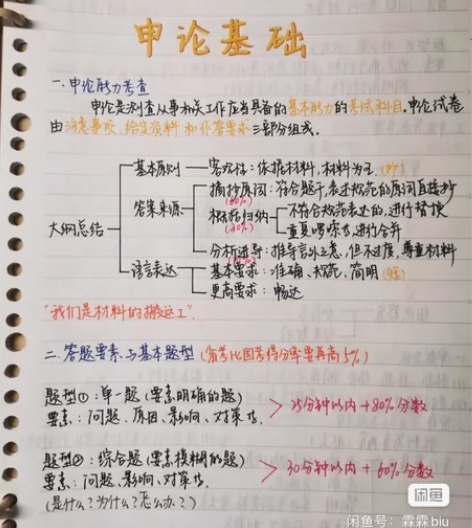 申论基础
一.申论能力考查
申论是测查从事机关工作应当具备的基本能力的考试科目.申论试卷
由注意事项、给定资料和作答要求三部分组成.
大纲总结
基本原则—客观性:依据材料,材料为王.(抄)
答案来源
摘抄原词:符合题干,表述规范的原词直接抄
(60%)
概括归纳
(30%)
不符合规范表达的,进行替换
重复啰嗦的,进行合并
分析推导:推导言外之意,但不过度,尊重材料
(10%)
语言表达
基本要求:准确、规范、简明
更高要求:畅达
"我们是材料的搬运工".
二.答题要素与基本题型(省考比国考得分率要再高5%)
题型①:单一题(要素明确的题)
要素:问题、原因、影响、对策等.
> 25分钟以内+80%分数
题型②:综合题(要素模糊的题)
要素:问题、影响、对策等.
> 30分钟以内+60%分数
(是什么?为什么?怎么办?)
闲鱼
闲鱼号:霖霖biu